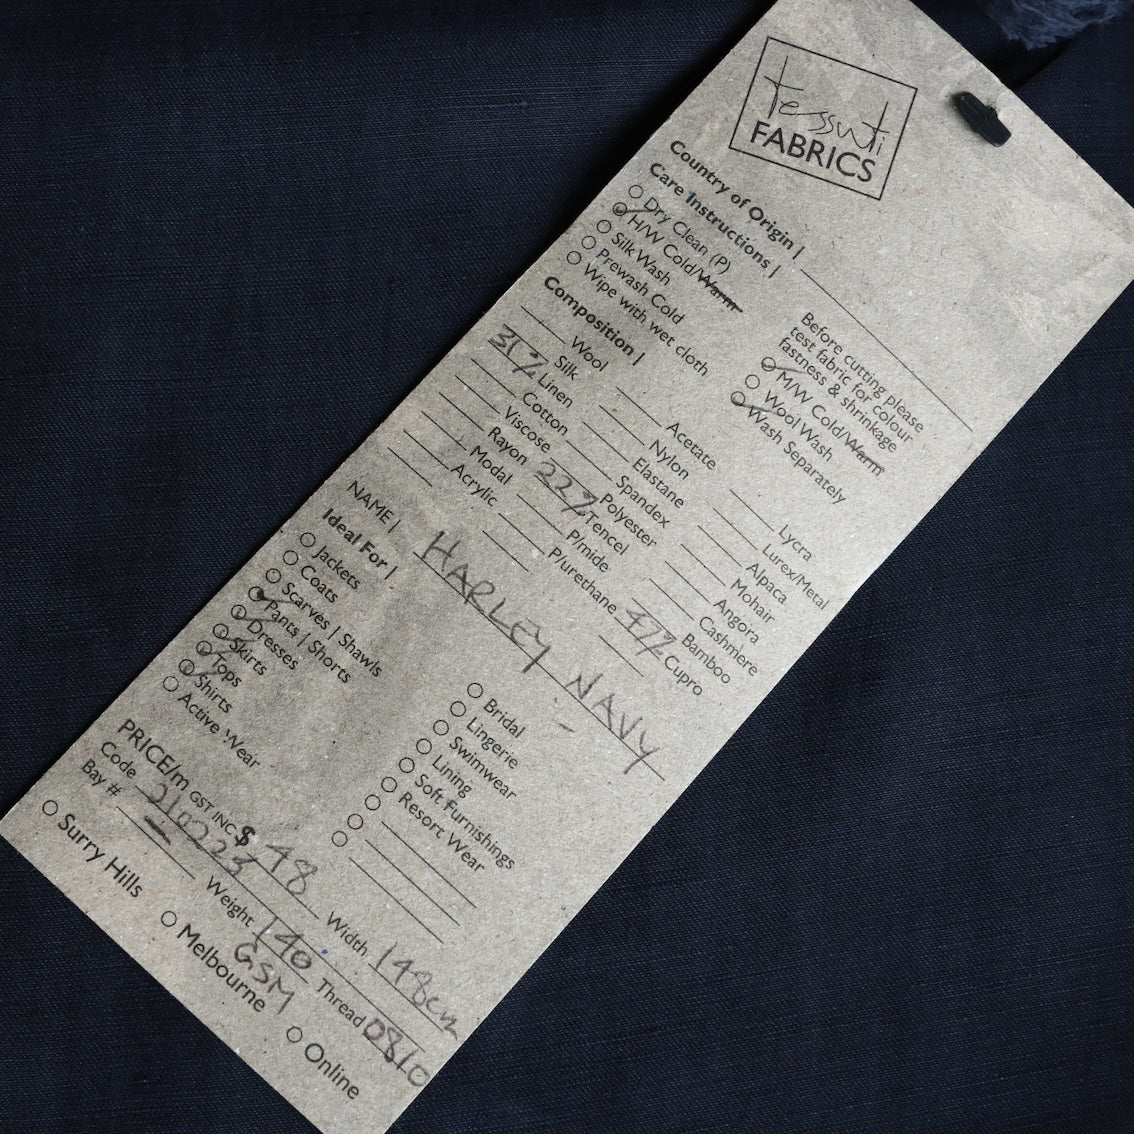 tessuti
FABRICS
Country of Origin |
Care Instructions |
Dry Clean (P)
H/W Cold/Warm
Silk Wash
Prewash Cold
Wipe with wet cloth
Before cutting please
test fabric for colour
fastness & shrinkage
M/W Cold/Warm
Wool Wash
Wash Separately
Composition |
Wool
Silk
31% Linen
Cotton
Viscose
Rayon
Modal
Acrylic
Acetate
Nylon
Elastane
Spandex
Polyester
22% Tencel
P/mide
P/urethane
Lycra
Lurex/Metal
Alpaca
Mohair
Angora
Cashmere
Bamboo
47% Cupro
NAME | HARLEY - NAVY
Ideal For |
Jackets
Coats
Scarves | Shawls
Pants | Shorts
Dresses
Skirts
Tops
Shirts
Active Wear
Bridal
Lingerie
Swimwear
Lining
Soft Furnishings
Resort Wear
PRICE/m GST INC $ 48 Width 148cm
Code 210223 Weight 140 GSM Thread 0810
Bay # -
Surry Hills Melbourne Online